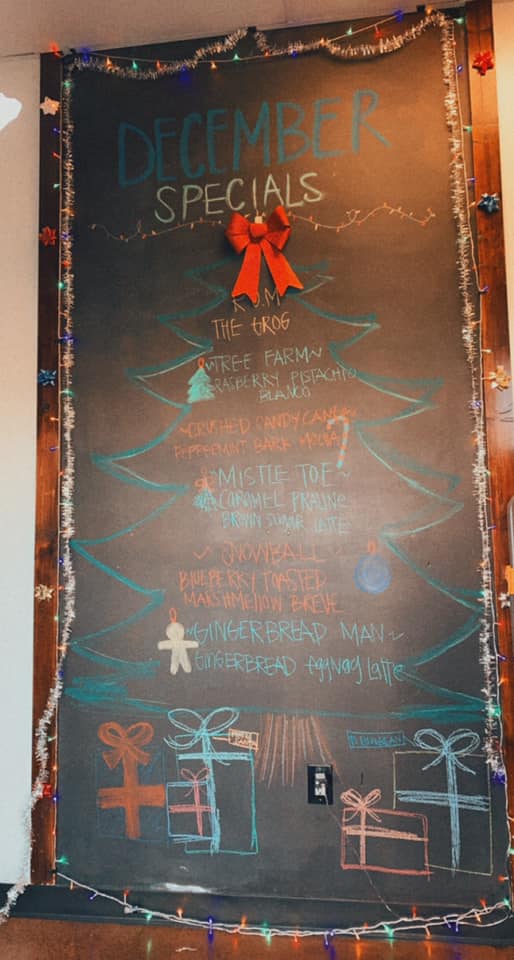 DECEMBER
SPECIALS
THE GROG
~TREE FARM~
RASBERRY PISTACHIO
BLANCO
~CRUSHED CANDY CANE~
PEPPERMINT BARK MOCHA
~MISTLE TOE~
CARAMEL PRALINE
BROWN SUGAR LATTE
~ SNOWBALL ~
BLUEBERRY TOASTED
MARSHMELLOW BREVE
~GINGERBREAD MAN~
GINGERBREAD eggnog Latte